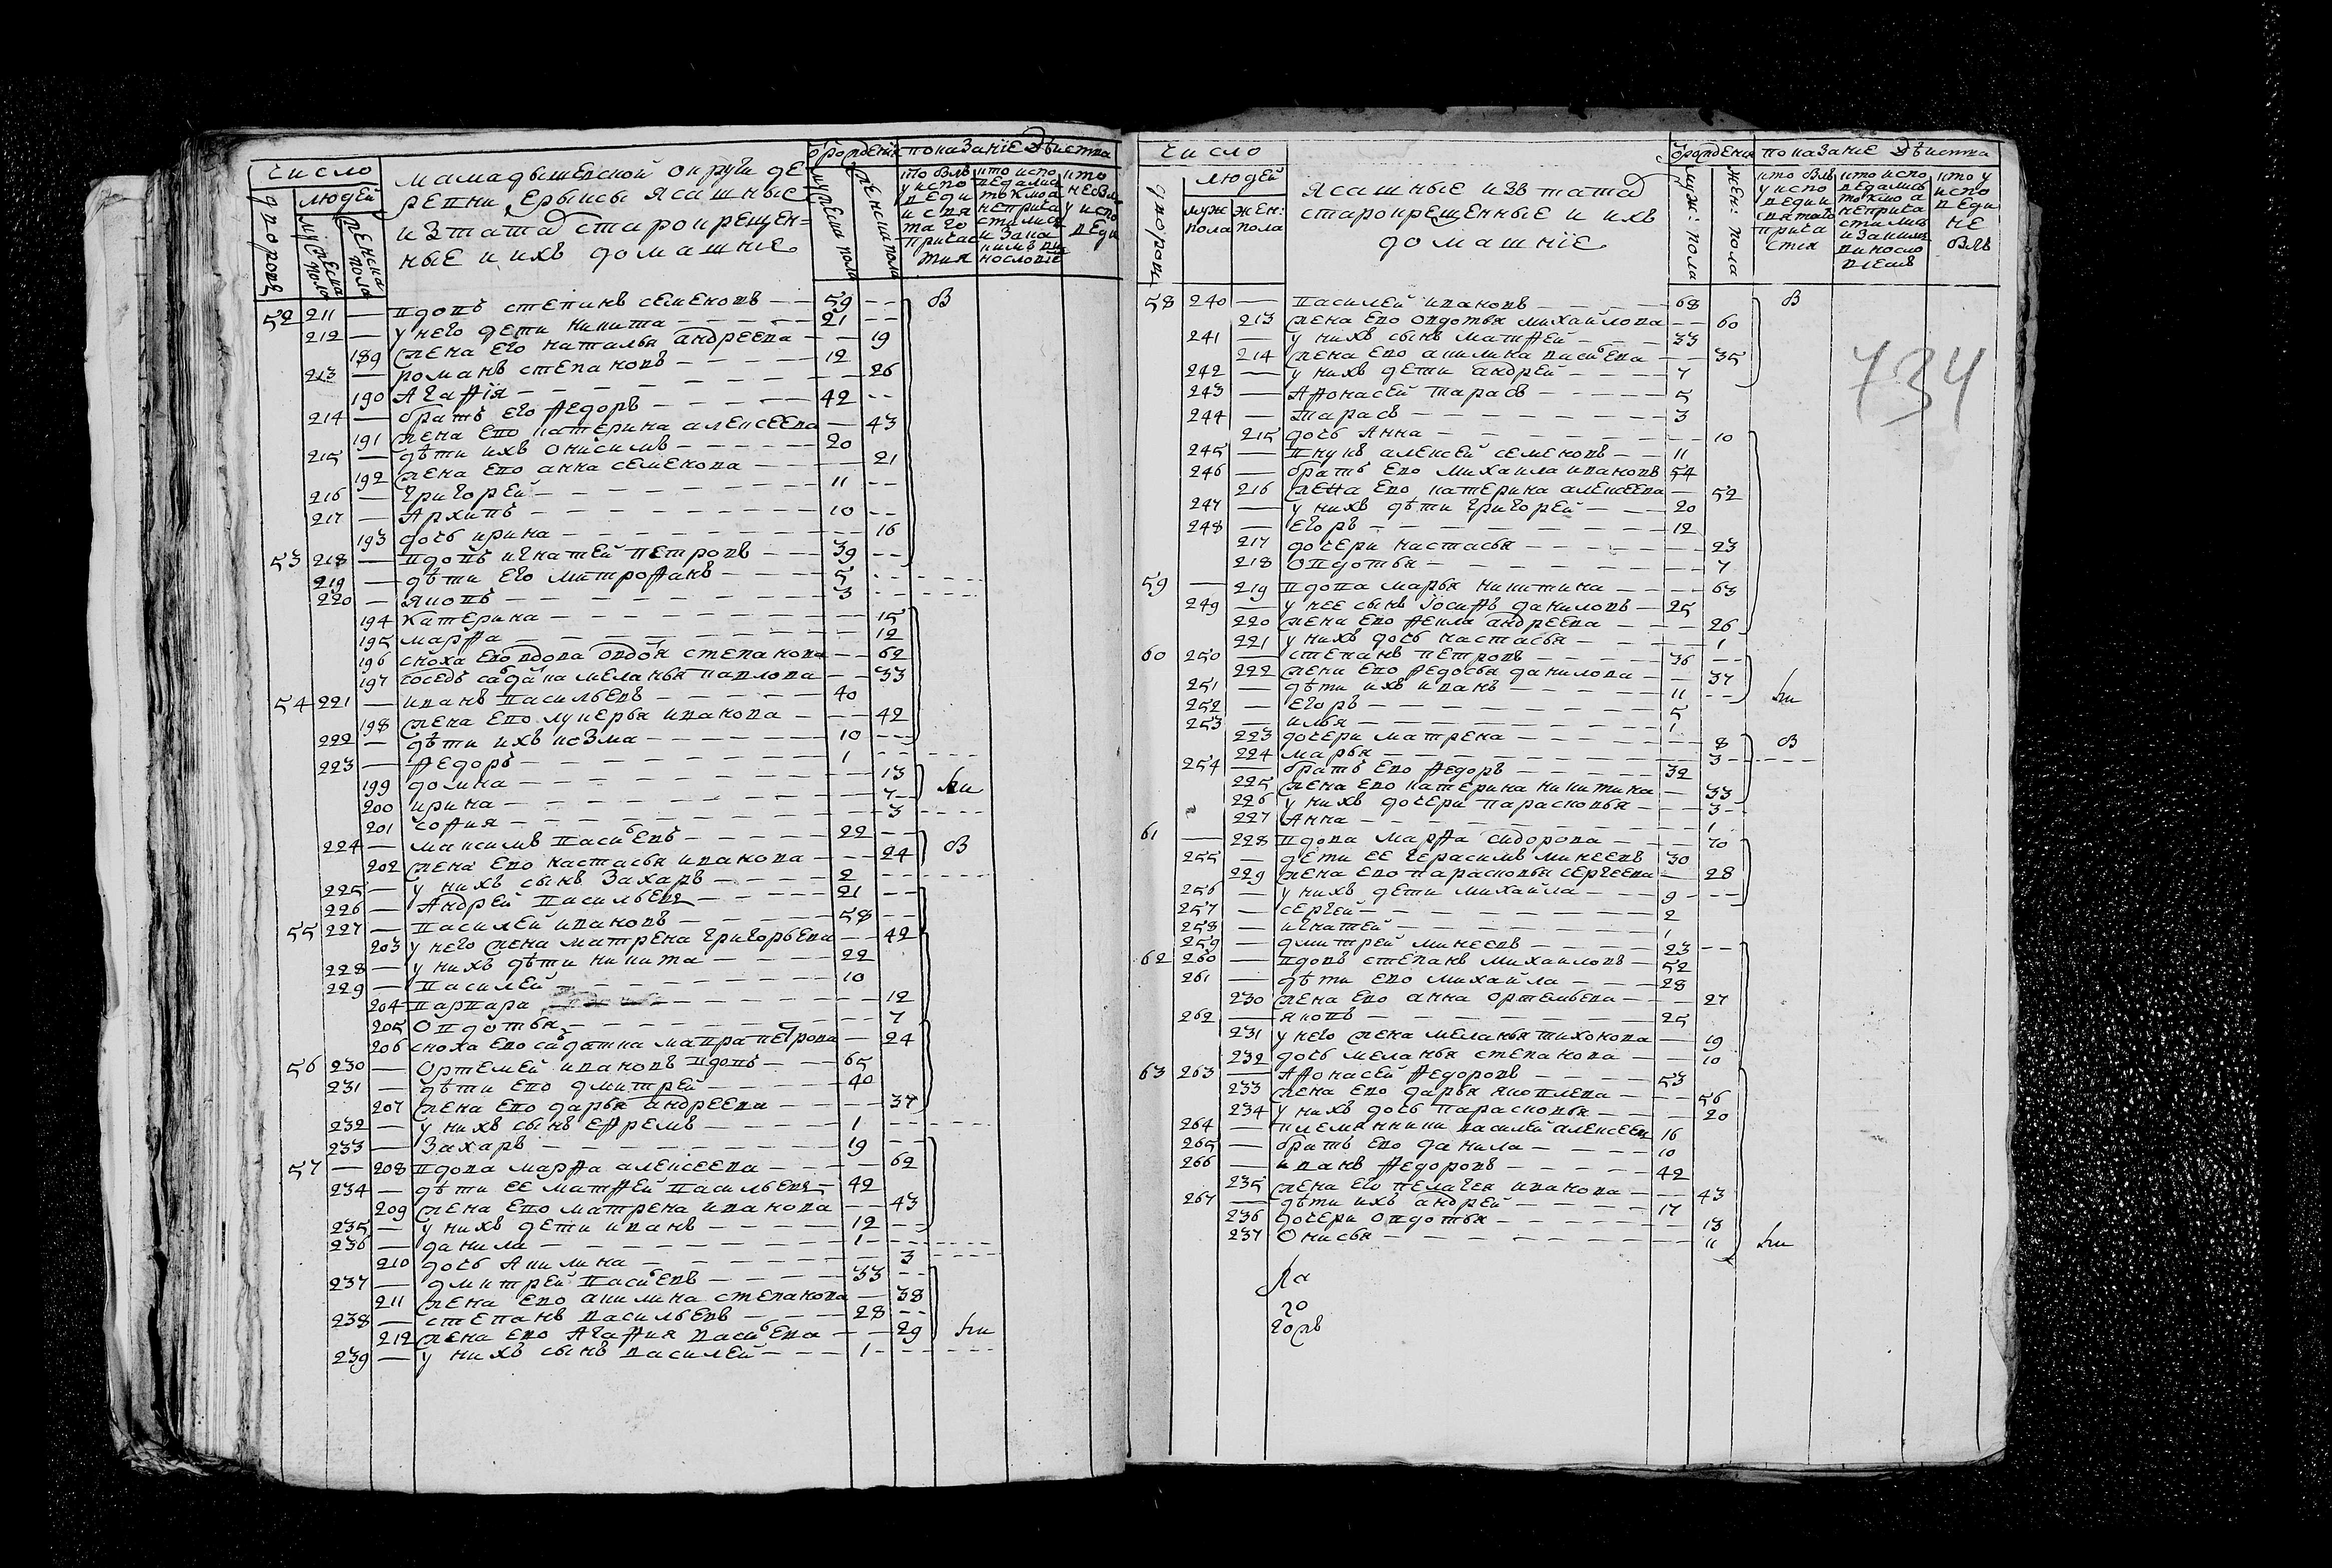 число
людей
дворовъ
мужеска пола
женска пола
мамадышевской округи де
ревни Ерыксы ясашные
изтатаръ старокрещен=
ные и ихъ домашние
Орождения
мужеска пола
женска пола
показание действа
кто былъ у исповеди и святаго причастия
кто исповедались токмо а непричастились и за каким виносло
кто небыл у исповеди
52 211 — вдовъ степанъ семеновъ — 59 — В
212 — у него дети никита — 21 —
189 жена его наталья андреева — 19
213 — романъ степановъ — 12
190 Агафія — 26
214 — братъ его федоръ — 42 —
191 жена ево катерина алексеева — 43
215 — дѣти ихъ онисимъ — 20
192 жена ево анна семенова — 21
216 — григорей — 11 —
217 — Архипъ — 10 —
193 дочь ирина — 16
53 218 — вдовъ игнатей петровъ — 39 —
219 — дѣти его митрофанъ — 5 —
220 — яковъ — 3 —
194 катерина — 15
195 марфа — 12
196 сноха ево вдова овдок степанова — 62
197 меланья павлова — 33
54 221 — иванъ васильевъ — 40
198 жена ево лукерья иванова — 42
222 — дѣти ихъ козма — 10 —
223 — федоръ — 1 —
199 домна — 13
200 ирина — 7
201 софия — 3
224 — максимъ васильевъ — 22 — В
202 жена ево настасья иванова — 24
225 — у нихъ сынъ захаръ — 2 —
226 — Андрей васильевъ — 21 —
55 227 — василей ивановъ — 58 —
203 у него жена матрена григорьева — 42
228 — у нихъ дѣти никита — 22
229 — василей — 10
204 варвара — 12
205 овдотья — 7
206 сноха ево салдатка мавра петрова — 24
56 230 — ортемей ивановъ вдовъ — 65
231 — дѣти ево дмитрей — 40
207 жена ево дарья андреева — 37
232 — у нихъ сынъ ефремъ — 1 —
233 — захаръ — 19 —
57 — 208 вдова марфа алексеева — 62
234 — дѣти ее матфей васильевъ — 42
209 жена ево матрена иванова — 43
235 — у нихъ дети иванъ — 12 —
236 — данила — 1 —
210 дочь Акилина — 3
237 — дмитрей васильевъ — 33 —
211 жена ево акилина степанова — 38
238 — степанъ васильевъ — 28 —
212 жена ево Агафия васильева — 29
239 — у нихъ сынъ василей — 1 —
число
людей
дворовъ
муж: пола
жен: пола
Ясашные изъ татаръ
старокрещенные и ихъ
домашніе
Орождения
муж: пола
жен: пола
показание действа
кто былъ у исповеди и святаго причастия
кто исповедались токмо а непричастились
кто у исповеди не былъ
734
58 240 — василей ивановъ — 68 В
213 жена ево овдотья михайлова — 60
241 — у нихъ сынъ матфей — 33
214 жена ево акилина васильева — 35
242 — у нихъ дети андрей — 7
243 — Афонасей тарасъ — 5
244 — тарасъ — 3
215 дочь Анна — 10
245 — внукъ алексей семеновъ — 11
246 — братъ ево михаила ивановъ 54
216 жена ево катерина алексеева — 52
247 — у нихъ дѣти григорей — 20
248 — егоръ — 12
217 дочери настасья — 23
218 овдотья — 7
59 — 219 вдова марья никитина — 63
249 — у нее сынъ іосифъ даниловъ — 25
220 жена ево фекла андреева — 26
221 у нихъ дочь настасья — 1
60 250 — степанъ петровъ — 36 —
222 жена ево федосья данилова — 37
251 — дѣти ихъ иванъ — 11 —
252 — егоръ — 5
253 — илья — 1
223 дочери матрена — 8 В
224 марья — 3
254 — братъ ево федоръ — 32
225 жена ево катерина никитина — 33
226 у нихъ дочери парасковья — 3
227 Анна — 1
61 — 228 вдова марфа сидорова — 70
255 — дети ее герасимъ минеевъ 30
229 жена ево парасковья сергеева — 28
256 — у нихъ дети михайла — 9 —
257 — сергей — 2
258 — игнатей — 1
259 — дмитрей минеевъ — 23 —
62 260 — вдовъ степанъ михаиловъ — 52
261 — дѣти ево михайла — 28
230 жена ево анна ортемьева — 27
262 — яковъ — 25
231 у него жена меланья тихонова — 19
232 дочь меланья степанова — 10
63 263 — Афонасей федоровъ — 53
233 жена ево дарья яковлева — 56
234 у нихъ дочь парасковья — 20
264 — племянники василей алексеевъ 16
265 — братъ ево данила — 10
266 — иванъ федоровъ — 42
235 жена его пелагея иванова — 43
267 — дѣти ихъ андрей — 17
236 дочери овдотья — 13
237 Онисья — 11